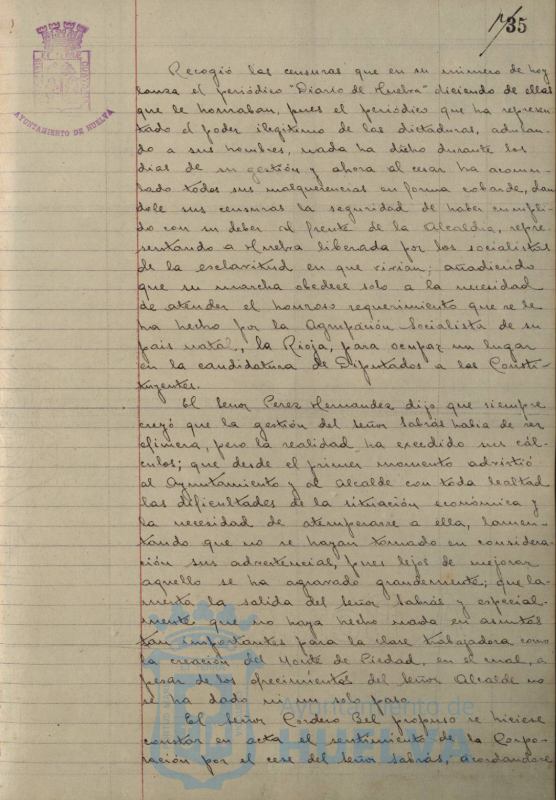 35
AYUNTAMIENTO DE HUELVA
Recogió las censuras que en su número de hoy
lanza el periódico "Diario de Huelva" diciendo de ellas
que le honraban, pues el periódico que ha represen-
tado el poder ilegítimo de las dictaduras, adulan-
do a sus hombres, nada ha dicho durante los
dias de su gestión y ahora al cesar ha acumu-
lado todos sus malquerencias en forma cobarde, dan
dole sus censuras la seguridad de haber cumpli-
do con su deber al frente de la Alcaldía, repre-
sentando a Huelva liberada por los socialistas
de la esclavitud en que vivian; añadiendo
que su marcha obedece solo a la necesidad
de atender el honroso requerimiento que se le
ha hecho por la Agrupación Socialista de su
pais natal, la Rioja, para ocupar un lugar
en la candidatura de Diputados a las Consti-
tuyentes.
El Señor Perez Hernandez dijo que siempre
creyó que la gestión del Señor Sabrás habia de ser
efimera, pero la realidad ha excedido sus cál-
culos; que desde el primer momento advirtió
al Ayuntamiento y al Alcalde con toda lealtad
las dificultades de la situación económica y
la necesidad de atemperarse a ella, lamen-
tando que no se hayan tomado en considera-
ción sus advertencias, pues lejos de mejorar
aquello se ha agravado grandemente; que la-
menta la salida del Señor Sabrás y especial-
mente que no haya hecho nada en asuntos
tan importantes para la clase trabajadora como
la creación del Monte de Piedad, en el cual, a
pesar de los ofrecimientos del Señor Alcalde no
se ha dado ni un solo paso.
El Señor Cordero Bel propuso se hiciese
constar en acta el sentimiento de la Corpo-
ración por el cese del Señor Sabrás, acordandose
Ayuntamiento de
HUELVA